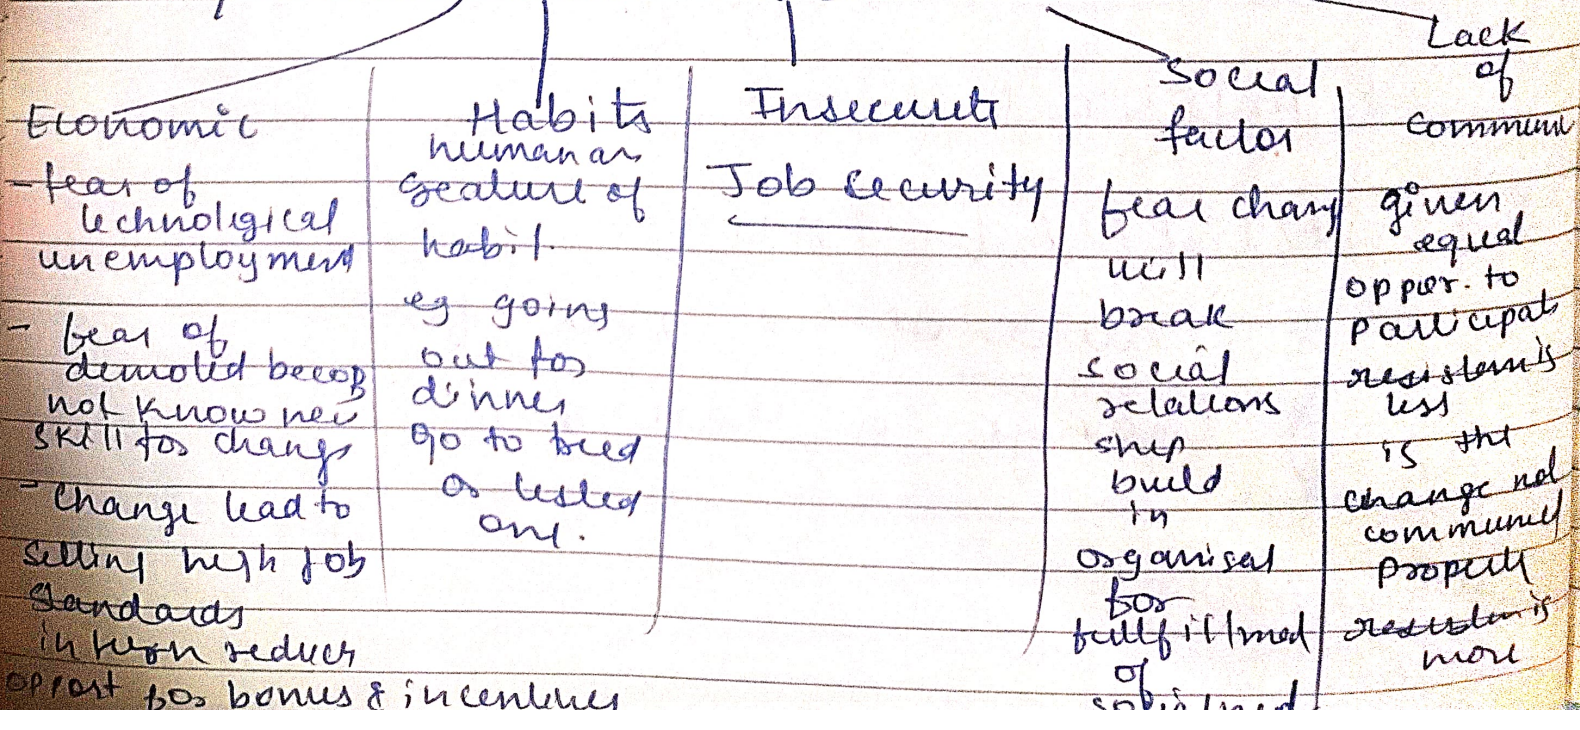 Economic
- fear of
technological
unemployment
- fear of
demoted becoz
not know new
skill for change
- change lead to
setting high job
standards
in turn reduces
opport for bonus & incentives
Habits
human an
creature of
habit.
eg going
out for
dinner
go to bed
or
one.
Insecurity
Job security
Social
factor
fear chang
will
break
social
relations
ship
build
in
organisat
for
fullfillmed
of
Lack
of
Commun
given
equal
oppor. to
participate
is
less
is the
change not
communed
properly
is
more